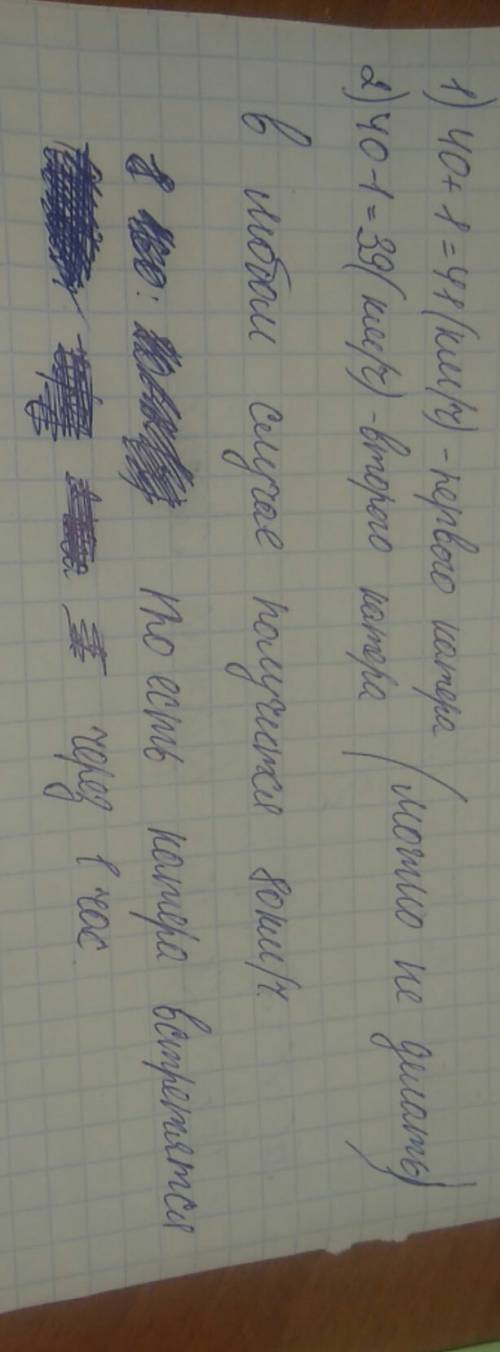 1) 40 + 1 = 41 (км/ч) - первого катера
2) 40 - 1 = 39 (км/ч) - второго катера (можно не делать)
В любом случае получится 80 км/ч.
То есть катера встретятся
через 1 час.